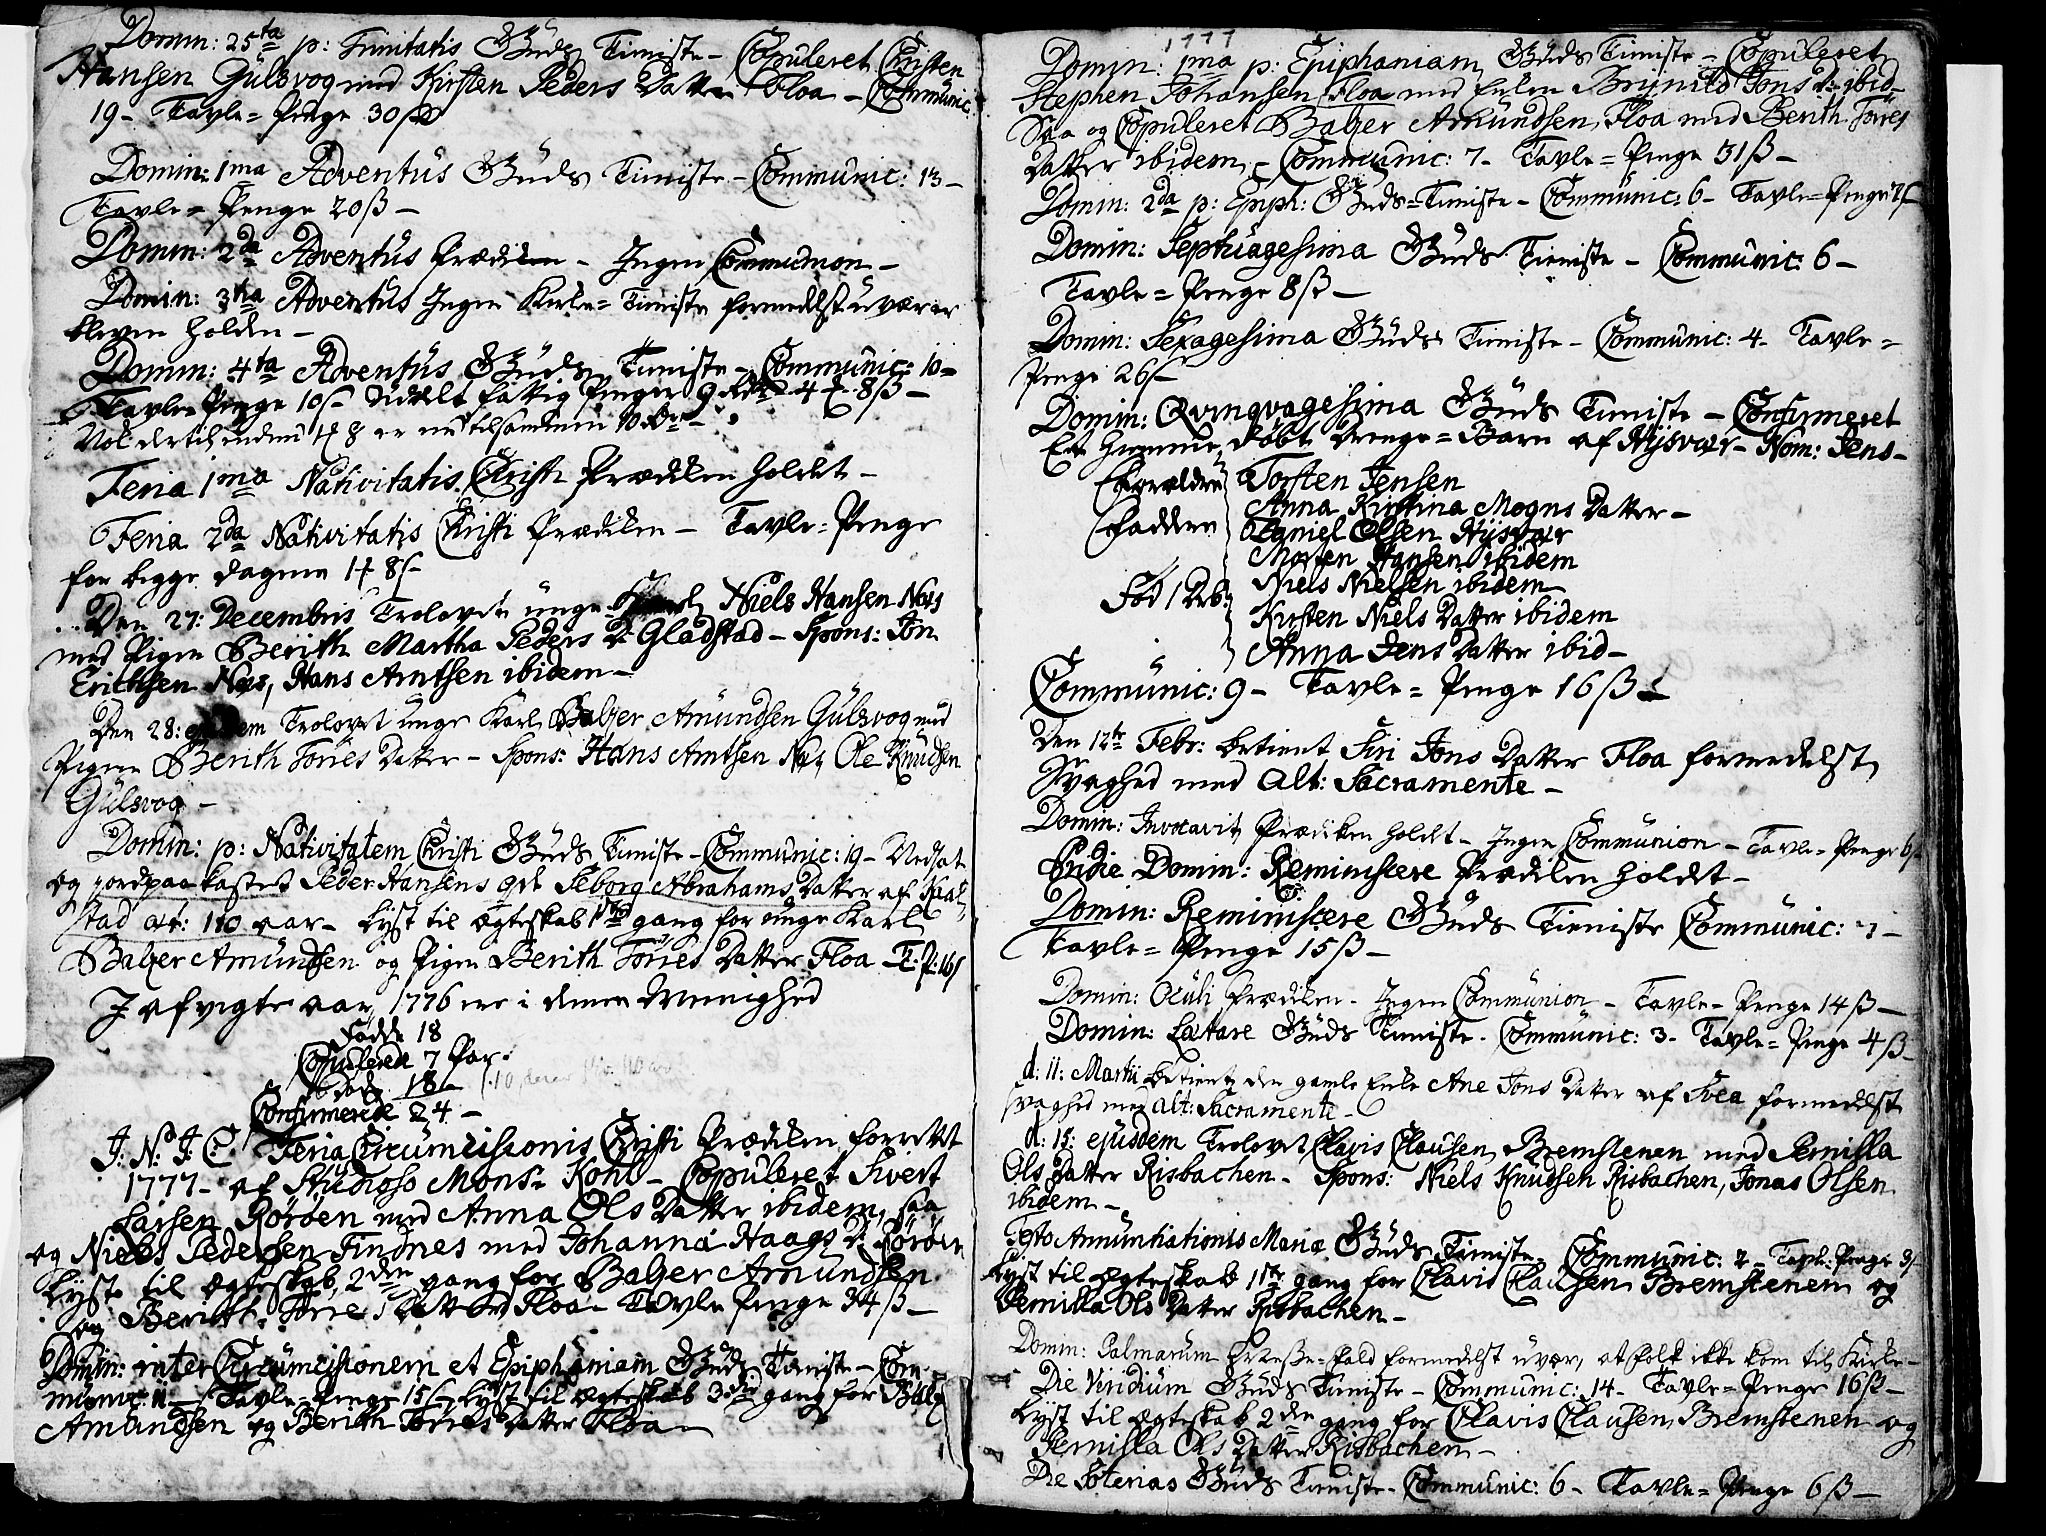 Domin: 25ta p: Trinitatis Guds Tieniste - Copuleret Christen
Hansen Gulsvog med Kirsten Peders Datter Floa - Communic:
19 - Tavle-Penge 30 ß
Domin: 1ma Adventus Guds Tieniste - Communic: 13 -
Tavle-Penge 20 ß -
Domin: 2da Adventus Prædiken - Ingen Communion -
Domin: 3tia Adventus Ingen Kirke-Tieniste formedelst uvær er
bleven holden -
Domin: 4ta Adventus Guds Tieniste - Communic: 10 -
Tavle-Penge 10 ß Uddelt fattig Penger 9 Rdr 4 8 ß -
Feria 1ma Nativitatis Christi Prædiken holdet -
Feria 2da Nativitatis Christi Prædiken - Tavle-Penge
for begge Dagene 1 8 ß -
Den 27: Decembris Trolovet unge Karl Niels Hansen
med Pigen Berith Martha Peders D: Gladstad - Spons: Jon
Erichsen, Hans Arntsen ibidem -
Den 28: ejusdem Trolovet unge Karl Balzer Amundsen Gulsvog med
Pigen Berith Torres Datter - Spons: Hans Arntsen Ole Knudsen
Gulsvog -
Domin: p: Nativitatem Christi Guds Tieniste - Communic: 19 - Nedsat
og jordpaakastet Peder Hansens Seborg Abrahams Datter af
stad æt: 110 aar - Lyst til Ægteskab 1ste gang for unge Karl
Balzer Amundsen og Pigen Berith Torres Datter Floa - T: P: 16 ß
I afvigte aar 1776 ere i denne Menighed
Fødde 18
Copulerede 7 Par
Døde 18 -
Confirmerede 24 -
J: N: J: C: Feria Circumcisionis Christi Prædiken forrettet
1777 - af Studioso Monsr Kohl - Copuleret Sivert
Larsen Röröen med Anna Ols Datter ibidem, saa
og Niels Pedersen Tindnes med Johanna Haags D: Röröen
Lyst til Ægteskab 2den gang for Balzer Amundsen
og Berith Torres Datter Floa - Tavle Penge 34 ß -
Domin: inter Circumcisionem et Epiphaniam Guds Tieniste - Com-
munic: 11 - Tavle-Penge 15 ß Lyst til Ægteskab 3die gang for Balz
Amundsen og Berith Torres Datter Floa -
1777
Domin: 1ma p: Epiphaniam Guds Tieniste - Copuleret
Stephen Johansen Floa med Enken Brynild Jons D: ibid -
Saa og Copuleret Balzer Amundsen Floa med Berith Torres
Datter ibidem - Communic: 7 - Tavle-Penge 31 ß -
Domin: 2da p: Epiph: Guds-Tieniste - Communic: 6 - Tavle-Penge
Domin: Septuagesima Guds Tieniste - Communic: 6 -
Tavle-Penge 8 ß -
Domin: Sexagesima Guds Tieniste - Communic: 4 - Tavle-
Penge 26 ß
Domin: Qvinqvagesima Guds Tieniste - Confirmeret
Et hiemme døbt Drenge-Barn af Hysvær - Nom: Jens -
Forældre Torsten Jensen
Anna Kirstina Mogns Datter -
Faddere Daniel Olsen Hysvær
Morten Hansen ibidem
Født 1 Niels Nielsen ibidem
Kirsten Niels Datter ibidem
Anna Jens Datter ibid -
Communic: 9 - Tavle-Penge 16 ß -
Den 12te Febr: betient Siri Jons Datter Floa formedelst
Svaghed med Alt: Sacramente -
Domin: Invocavit Prædiken holdt - Ingen Communion - Tavle-Penge 6 ß
Pridie Domin: Reminiscere Prædiken holdet -
Domin: Reminiscere Guds Tieniste Communic: 7 -
Tavle-Penge 15 ß -
Domin: Oculi Prædiken - Ingen Communion - Tavle-Penge 14 ß -
Domin: Lætare Guds Tieniste - Communic: 3 - Tavle-Penge 4 ß -
d: 11: Martii betient den gamle Enke Ane Jons Datter af Svea formedelst
svaghed med Alt: Sacramente -
d: 15: ejusdem Trolovet Clavis Clausen Bremstenen med Pernilla
Ols Datter Risbachen - Spons: Niels Knudsen Risbachen, Jonas Olsen
ibidem -
Festo Annuntiationis Mariæ Guds Tieniste - Communic: 2 - Tavle-Penge 3 ß
Lyst til Ægteskab 1ste gang for Clavis Clausen Bremstenen og
Pernilla Ols Datter Risbachen -
Domin: Palmarum Messe-fald formedelst uvær, at folk ikke kom til Kirke -
Die Viridium Guds Tieniste - Communic: 14 - Tavle-Penge 16 ß -
Lyst til Ægteskab 2den gang for Clavis Clausen Bremstenen og
Pernilla Ols Datter Risbachen -
Die Soterias Guds Tieniste - Communic: 6 - Tavle-Penge 6 ß -